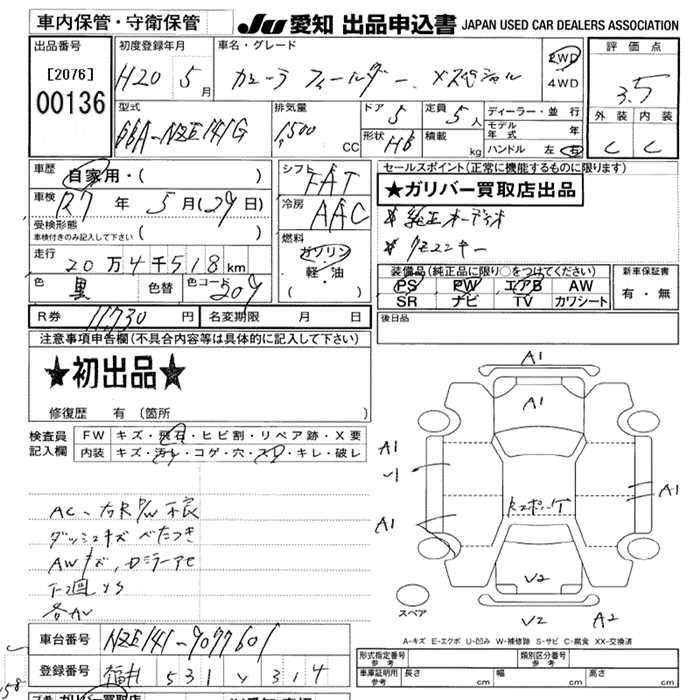 車内保管・守衛保管
JU 愛知 出品申込書 JAPAN USED CAR DEALERS ASSOCIATION
出品番号
[2076]
00136
初度登録年月
H20 5月
車名・グレード
カローラ フィールダー Xスペシャル
2WD
4WD
評価点
3.5
外装 内装
C C
型式
DBA-NZE141G
排気量
1,500 CC
ドア 5
形状 HB
定員 5人
積載 kg
ディーラー・並行
モデル年式 年
ハンドル 左 右
車歴
自家用・( )
車検
R7年 5月(29日)
受検形態
車検付きのみ記入して下さい ( )
走行
20万4千518km
色 黒 色替 色コード 209
シフト FAT
冷房 AAC
燃料
ガソリン
軽・油
( )
セールスポイント(正常に機能するものに限ります)
★ガリバー買取店出品
＊純正オーディオ
＊タイミングチェーン
装備品(純正品に限り○をつけてください)
PS PW エアB AW
SR ナビ TV カワシート
新車保証書
有・無
R券 11,730円 名変期限 月 日
後日品
注意事項申告欄(不具合内容等は具体的に記入して下さい)
★初出品★
修復歴 有 (箇所 )
検査員
記入欄
FW キズ・飛石・ヒビ割・リペア跡・X要
内装 キズ・汚レ・コゲ・穴・スレ・キレ・破レ
AC-右R P/W不良
ダッシュキズ ベたつき
AWキズ, Dミラーアセ
下廻りS
各AU
A1
A1
A1
A1
A1
U2
U2 A2
スペア
A-キズ E-エクボ U-凹み W-補修跡 S-サビ C-腐食 XX-交換済
車台番号 NZE141-9077601
登録番号 福井 531 ソ 314
形式指定番号 参考
類別区分番号 参考
車庫証明用 参考 長さ cm 幅 cm 高さ cm
158
ガリバー買取店